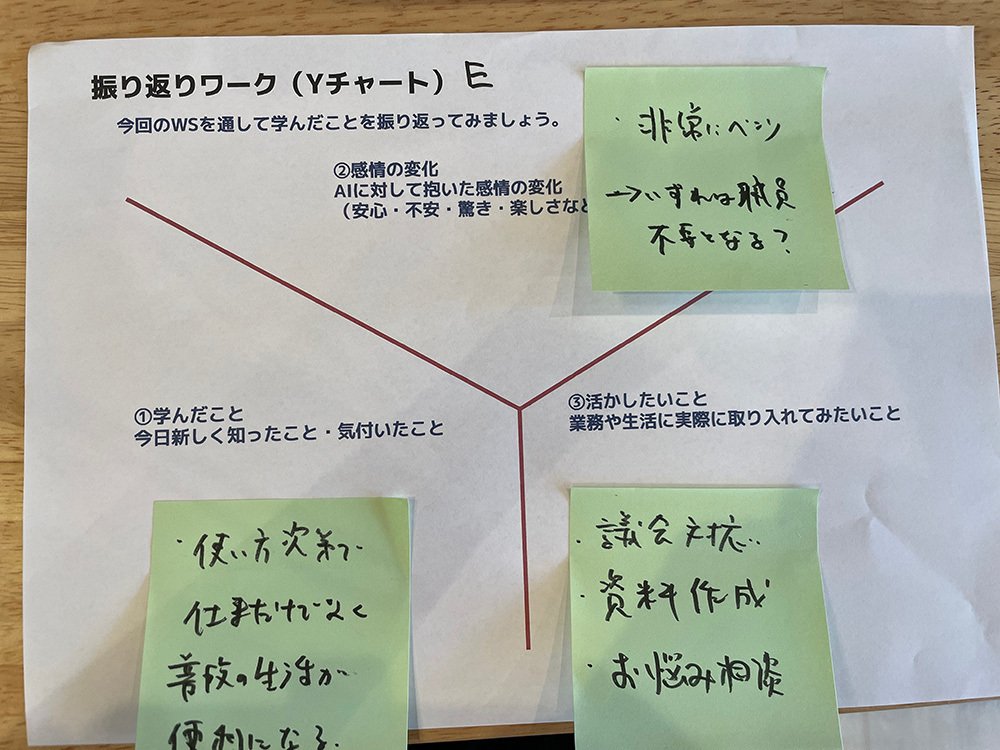 振り返りワーク（Yチャート） E
今回のWSを通して学んだことを振り返ってみましょう。
②感情の変化
AIに対して抱いた感情の変化
（安心・不安・驚き・楽しさなど
・非常にベンリ
→いずれは職員
不要となる？
①学んだこと
今日新しく知ったこと・気付いたこと
・使い方次第で
仕事だけでなく
普段の生活が
便利になる.
③活かしたいこと
業務や生活に実際に取り入れてみたいこと
・議会対応
・資料作成
・お悩み相談